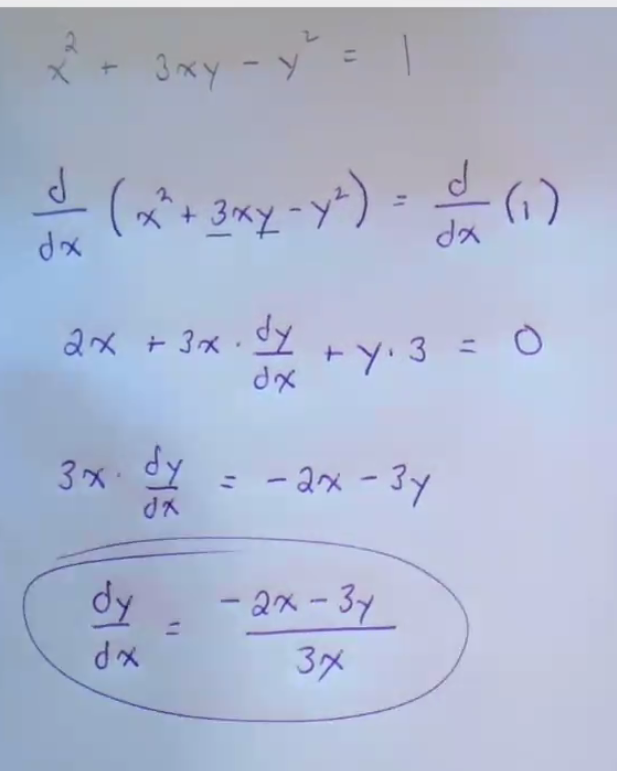 x² + 3xy - y² = 1
d/dx (x² + 3xy - y²) = d/dx (1)
2x + 3x · dy/dx + y · 3 = 0
3x · dy/dx = -2x - 3y
dy/dx = (-2x - 3y)/3x